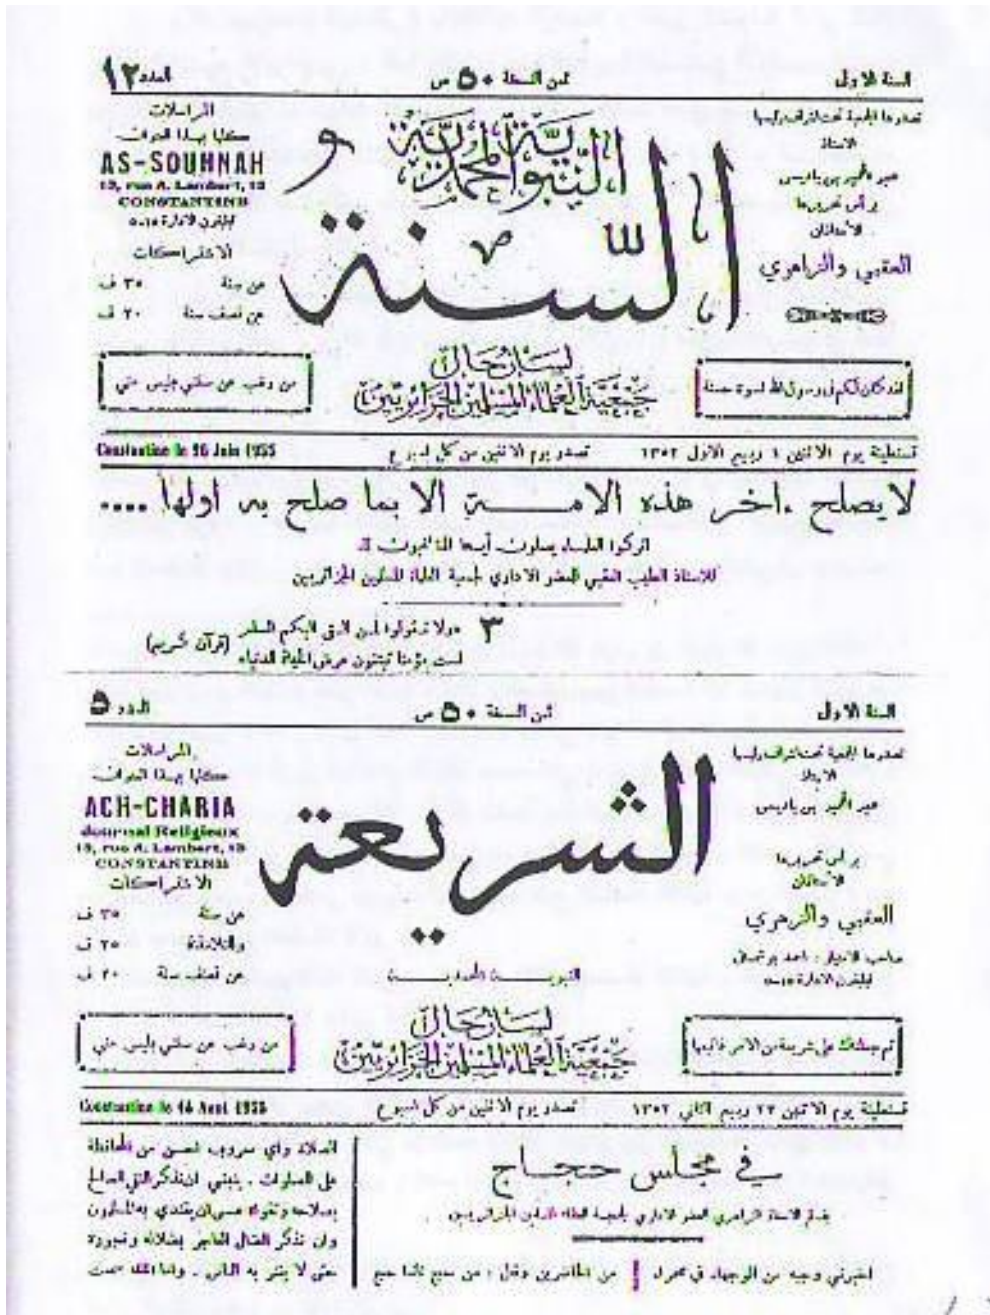 السنة الاولى
ثمن النسخة ٥٠ ص
العدد ١٢
تصدرها الجمعية تحت اشراف رئيسها
الاستاذ
عبد الحميد بن باديس
يرأس تحريرها
الأستاذان
العقبي والزاهري
السنة
النبوية المحمدية
المراسلات
كلها بهذا العنوان
AS-SOUNNAH
13, rue A. Lambert, 13
CONSTANTINE
تيليفون الادارة ٥،١٥
الاشتراكات
عن سنة ٣٥ ف
عن نصف سنة ٢٠ ف
لقد كان لكم في رسول الله اسوة حسنة
لسان حال
جمعية العلماء المسلمين الجزائريين
من رغب عن سنتي فليس مني
قسنطينة يوم الاثنين ٤ ربيع الاول ١٣٥٢
تصدر يوم الاثنين من كل اسبوع
Constantine le 26 Juin 1933
لا يصلح ءاخر هذه الامـــة الا بما صلح به اولها ....
للاستاذ الطيب العقبي العضو الاداري لجمعية العلماء المسلمين الجزائريين
٣
«ولا تقولوا لمن القى اليكم السلم
لست مؤمنا تبتغون عرض الحياة الدنيا»
(قرآن كريم)
السنة الاولى
ثمن النسخة ٥٠ ص
العدد ٥
تصدرها الجمعية تحت اشراف رئيسها
الاستاذ
عبد الحميد بن باديس
يرأس تحريرها
الأستاذان
العقبي والزاهري
صاحب الامتياز: احمد بوشمال
تيليفون الادارة ٥،١٥
الشريعة
النبوية المحمدية
المراسلات
كلها بهذا العنوان
ACH-CHARIA
Journal Religieux
13, rue A. Lambert, 13
CONSTANTINE
الاشتراكات
عن سنة ٣٥ ف
وللتلامذة ٢٥ ف
عن نصف سنة ٢٠ ف
ثم جعلناك على شريعة من الامر فاتبعها
لسان حال
جمعية العلماء المسلمين الجزائريين
من رغب عن سنتي فليس مني
قسنطينة يوم الاثنين ٢٣ ربيع الثاني ١٣٥٢
تصدر يوم الاثنين من كل اسبوع
Constantine le 14 Aout 1933
في مجلس حجـاج
بقلم الاستاذ الزاهري العضو الاداري بجمعية العلماء المسلمين الجزائريين
على الصلوات . ينبغي ان تذكر التقي الصالح
بصلاحه وتقواه عسى ان يقتدي به المسلمون
وان تذكر الضال الفاجر بضلاله وفجوره